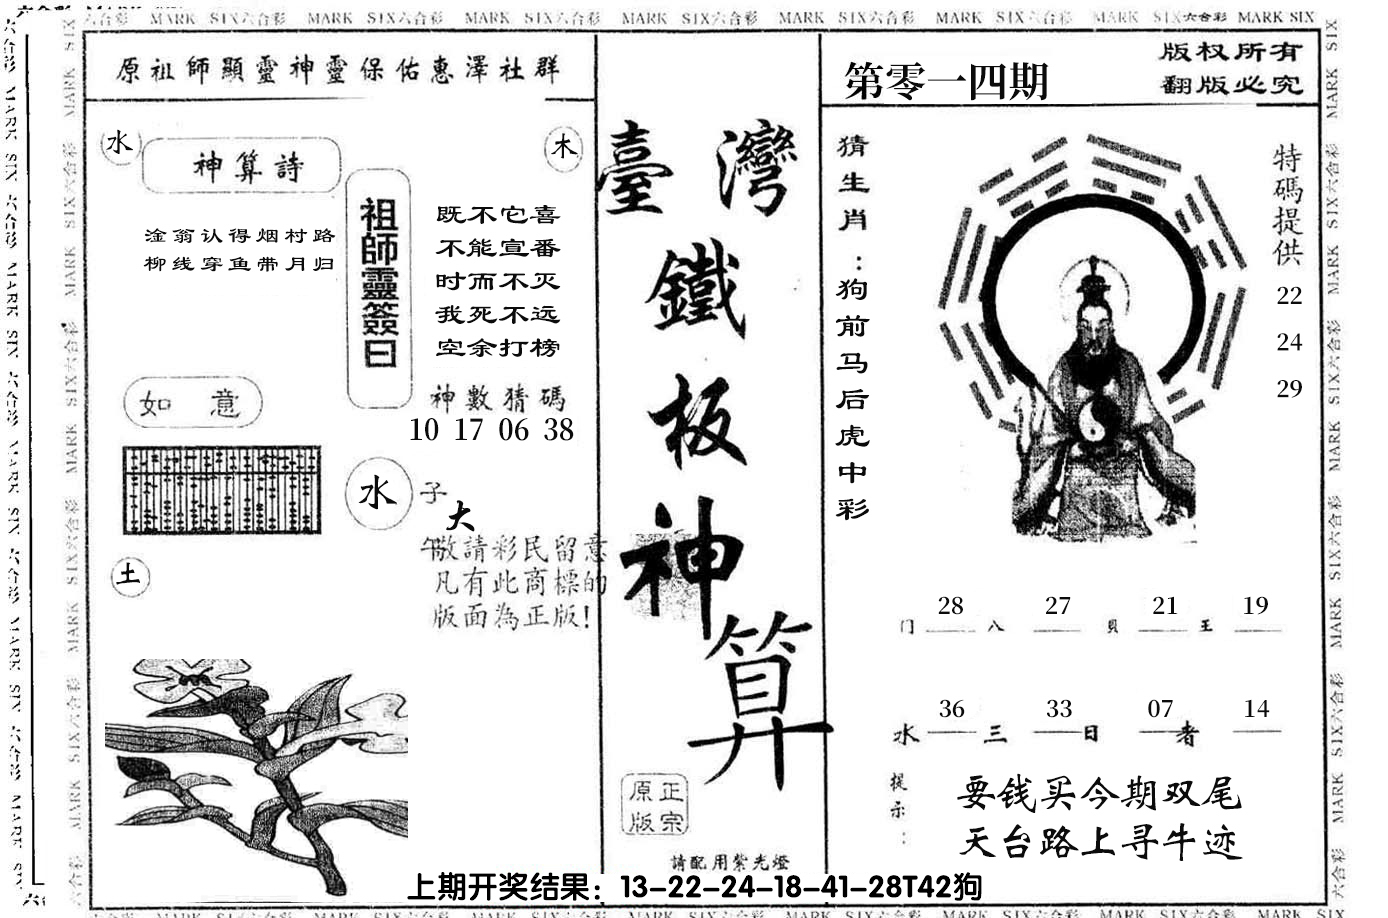 MARK SIX六合彩 MARK SIX六合彩 MARK SIX六合彩 MARK SIX六合彩 MARK SIX六合彩 MARK SIX六合彩 MARK SIX六合彩 MARK SIX
原祖師顯靈神靈保佑惠澤社群
水
神算詩
木
淦翁认得烟村路
柳线穿鱼带月归
祖師靈簽曰
既不它喜
不能宣番
时而不灭
我死不远
空余打榜
神數猜碼
10 17 06 38
如意
水
子
大
午
敬請彩民留意
凡有此商標的
版面為正版!
土
臺灣
鐵
板
神
算
正宗
原版
請配用紫光燈
第零一四期
版权所有
翻版必究
猜生肖:狗前马后虎中彩
特碼提供
22
24
29
28 27 21 19
门 八 貝 王
36 33 07 14
水 三 日 者
提示:
要钱买今期双尾
天台路上寻牛迹
上期开奖结果：13-22-24-18-41-28T42狗